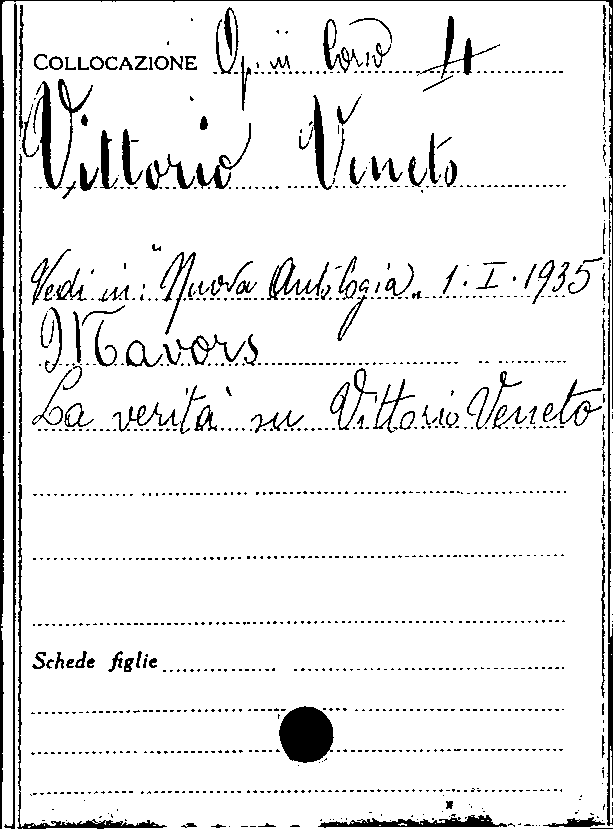 COLLOCAZIONE Op. in Corso 4
Vittorio Veneto
Vedi in: "Nuova Antologia„ 1. I. 1935
Mavors
La verità su Vittorio Veneto
Schede figlie